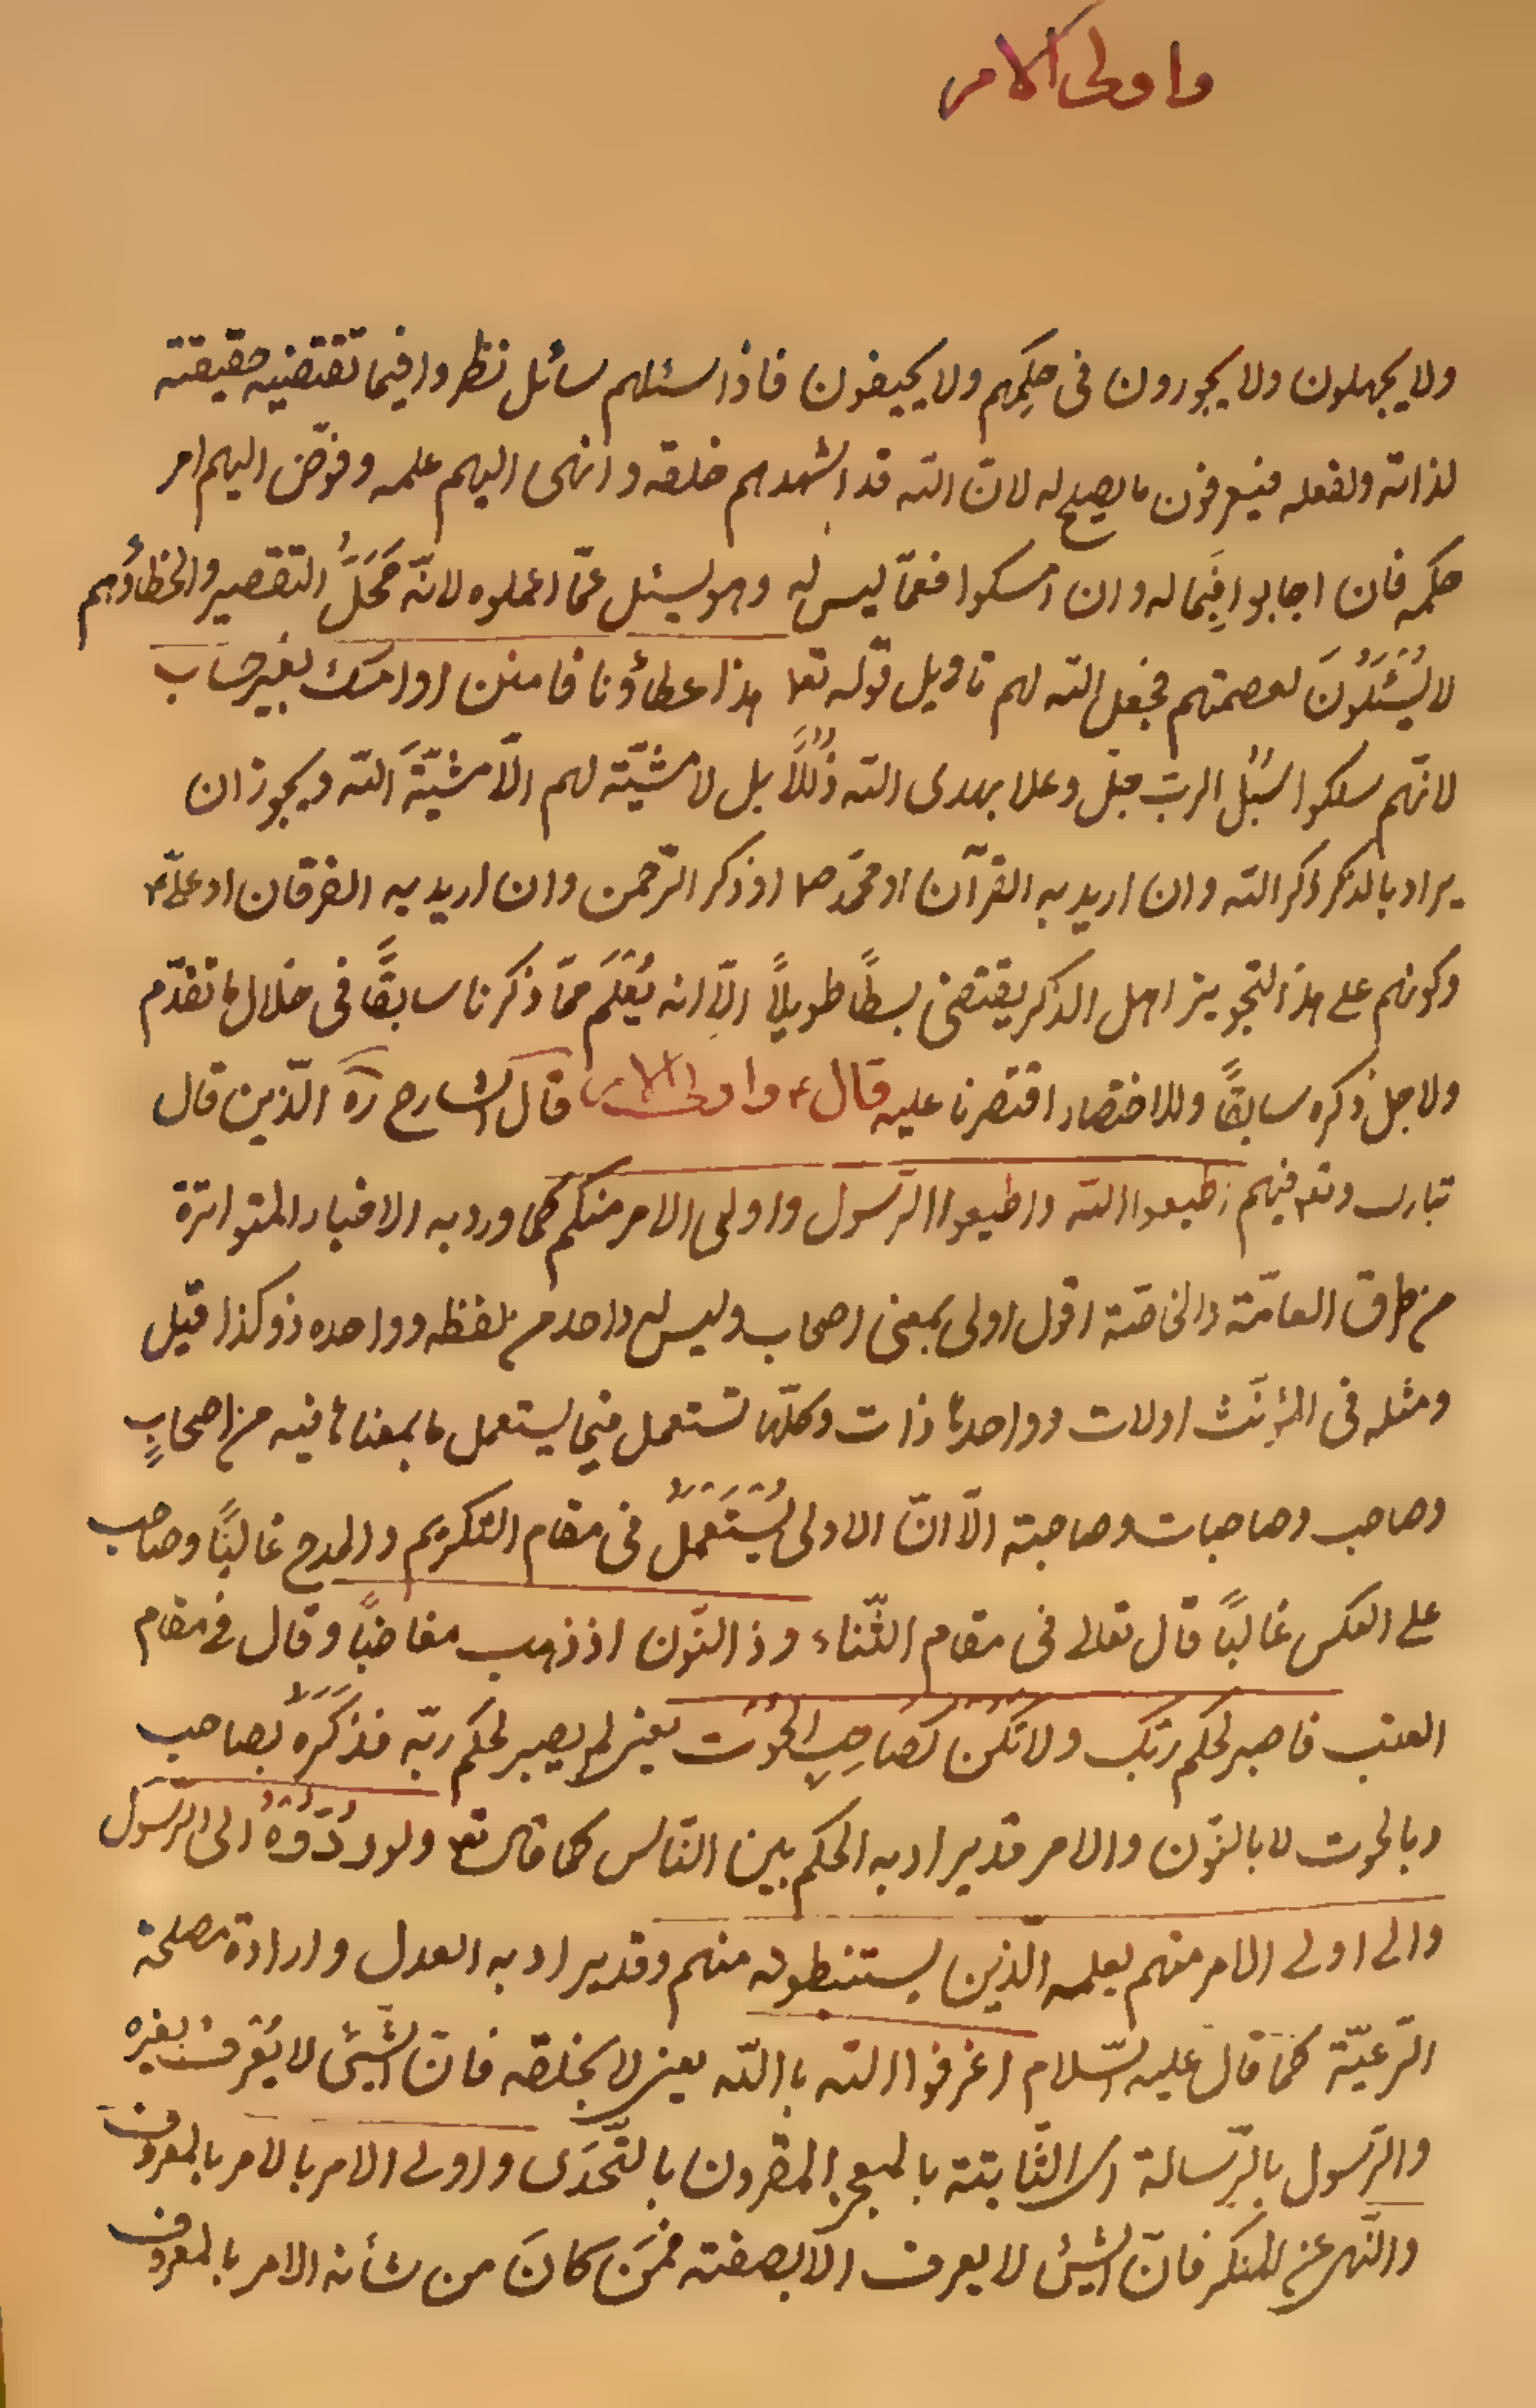 واولى الامر
ولا يجهلون ولا يجورون فى حكمهم ولا يحيفون فاذا سئلهم سائل نظروا فيما تقتضيه حقيقته
لذاته ولفعله فيعرفون ما يصلح له لانّ الله قد اشهدهم خلقه وانهى اليهم علمه وفوّض اليهم امر
حكمه فان اجابوا فِيَما له وان امسكوا فعمّا ليس له وهو يسئل عمّا اعملوه لانّه مَحَلُّ التقصير والخطاؤهم
لا يُسْئَلُوَنَ لعصمتهم فجعل الله لهم تاويل قوله تعا هذا عطاؤنا فامنن او امسك بغير حساب
لانّهم سلكوا سُبُل الرب جل وعلا بهدى الله ذُلُلاً بل لا مشيّة لهم الّا مشيّةَ الله ويجوز ان
يراد بالذكر ذكر الله وان اريد به القرآن او محمّد صا او ذكر الرّحمن وان اريد به الفرقان او علىّ ع
وكونهم على هذا التجويز اهل الذكر يقتضى بسطًا طويلاً الّا انه يُعْلَم ممّا ذكرنا سابقًا فى خلال ما تقدّم
ولاجل ذكره سابقًا وللاختصار اقتصرنا عليه قال ع واولى الامر قال الشارح ره الّذين قال
تبارك وتع فيهم اطيعوا الله واطيعوا الرّسول واولى الامر منكم كما ورد به الاخبار المتواترة
من طرق العامّة والخاصّة اقول اولى بمعنى اصحاب وليس له واحد من لفظه وواحده ذو كذا قيل
ومثله فى المؤنَث اولات وواحدها ذات وكلّها تستعمل فيما يستعمل ما بمعناها فيه من اصحابٍ
وصاحب وصاحبات وصاحبة الّا انّ الاولى يُسْتَعْمَلُ فى مقام التكريم والمدح غالبًا وصاحب
على العكس غالبًا قال تعالى فى مقام الثّناء وذا النّون اذ ذهب مغاضبًا وقال فى مقام
العتب فاصبر لحكم ربّك ولا تكُن كصَاحِبِ الحُوت يعنى لم يصبر لحكم ربّه فذكَرَهُ بصاحب
وبالحوت لا بالنّون والامر قد يراد به الحكم بين النّاس كما قال تع ولو ردُّوُهُ الى الرّسَول
والى اولى الامر منهم لعلمه الّذين يستنبطونه منهم وقد يراد به العدل وارادة مصلحة
الرّعيّة كما قال عليه السّلام اعْرفوا الله بالله يعنى لا بخلقه فانّ الشّئ لا يُعْرف بغيره
والرّسول بالرّسالة اى الثّابتة بالمعجز المقرون بالتّحَدّى واولى الامر بالامر بالمعروف
والنّهى عن المنكر فانّ الشّئ لا يعرف الّا بصفته فمَن كانَ من شأنه الامر بالمعروف